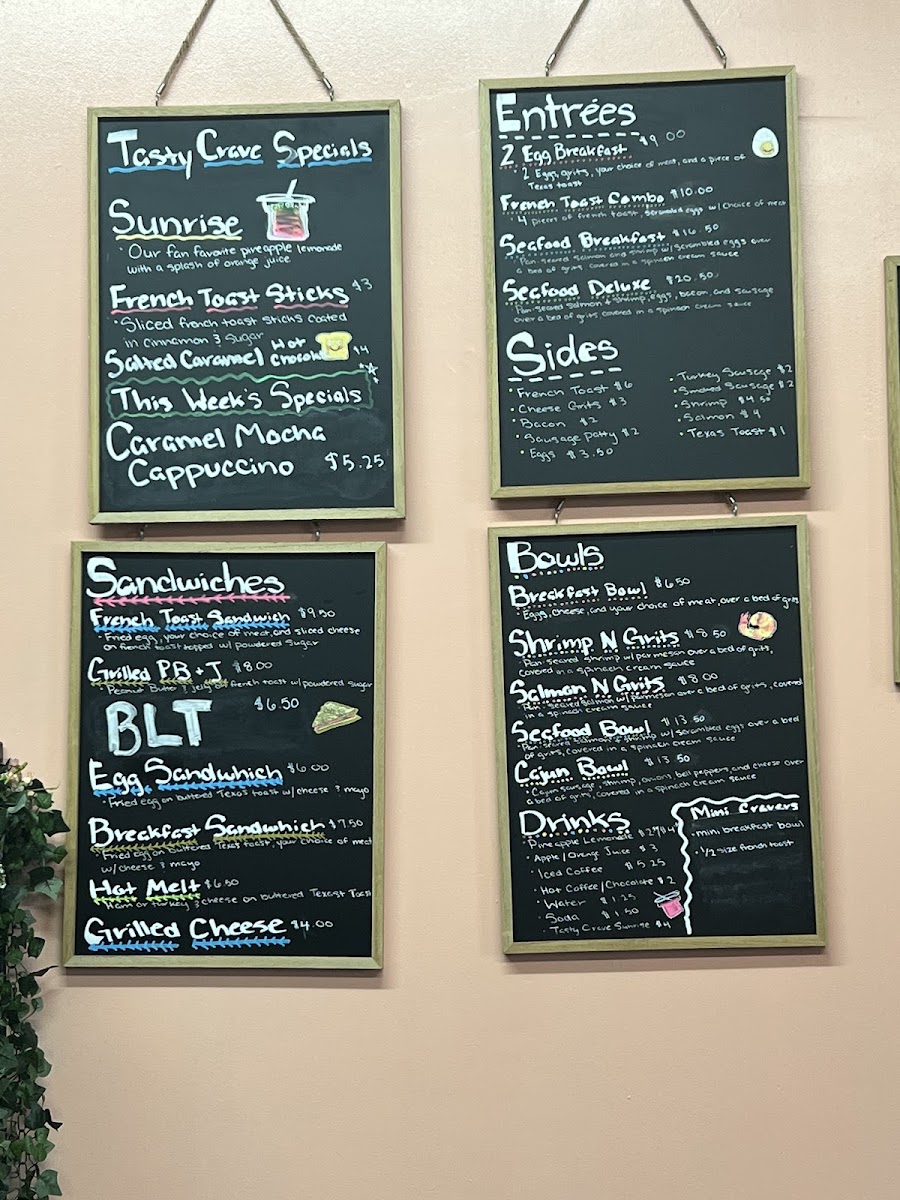 Tasty Crave Specials
Sunrise
• Our fan favorite pineapple lemonade
with a splash of orange juice.
French Toast Sticks $3
• Sliced french toast sticks coated
in cinnamon & sugar
Salted Caramel Hot Chocolate $4
This Week's Specials
Caramel Mocha
Cappuccino $5.25
Entrées
2 Egg Breakfast $9.00
• 2 Eggs, grits, your choice of meat, and a piece of
Texas toast
French Toast Combo $10.00
• 4 pieces of french toast, scrambled eggs w/ choice of meat
Seafood Breakfast $16.50
• Pan-seared salmon and shrimp w/ scrambled eggs over
a bed of grits, covered in a spinach cream sauce
Seafood Deluxe $20.50
• Pan-seared salmon & shrimp, eggs, bacon, and sausage
over a bed of grits, covered in a spinach cream sauce
Sides
• French Toast $6
• Cheese Grits $3
• Bacon $2
• Sausage Patty $2
• Eggs $3.50
• Turkey Sausage $2
• Smoked Sausage $2
• Shrimp $4.50
• Salmon $4
• Texas Toast $1
Sandwiches
French Toast Sandwich $9.50
• Fried egg, your choice of meat, and sliced cheese
on french toast topped w/ powdered sugar
Grilled PB + J $8.00
• Peanut Butter & jelly on french toast w/ powdered sugar
BLT $6.50
Egg Sandwhich $6.00
• Fried egg on buttered Texas toast w/ cheese & mayo
Breakfast Sandwhich $7.50
• Fried egg on buttered Texas toast, your choice of meat
w/ cheese & mayo
Hot Melt $6.50
• Ham or turkey & cheese on buttered Texast Toast
Grilled Cheese $4.00
Bowls
Breakfast Bowl $6.50
• Eggs, cheese, and your choice of meat, over a bed of grits
Shrimp N Grits $8.50
• Pan-seared shrimp w/ parmesan over a bed of grits,
covered in a spinach cream sauce
Salmon N Grits $8.00
• Pan-seared salmon w/ parmesan over a bed of grits, covered
in a spinach cream sauce
Seafood Bowl $13.50
• Pan-seared salmon & shrimp w/ scrambled eggs over a bed
of grits, covered in a spinach cream sauce
Cajun Bowl $13.50
• Cajun sausage, shrimp, onion, bell peppers and cheese over
a bed of grits, covered in a spinach cream sauce
Drinks
• Pineapple Lemonade
• Apple/Orange Juice $3
• Iced Coffee $5.25
• Hot Coffee/Chocolate $2
• Water $1.25
• Soda $1.50
• Tasty Crave Sunrise $4
Mini Cravers
• mini breakfast bowl
• 1/2 size french toast